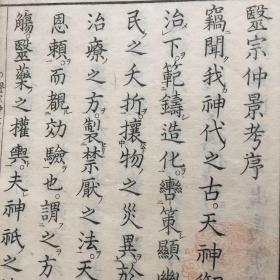 醫宗仲景考序
竊聞我神代之古天神
治下範鑄造化轡策顯幽
民之夭折攘物之災異於
治療之方製禁厭之法天
恩賴而覩効驗也謂之方
觴醫藥之權輿夫神祇之